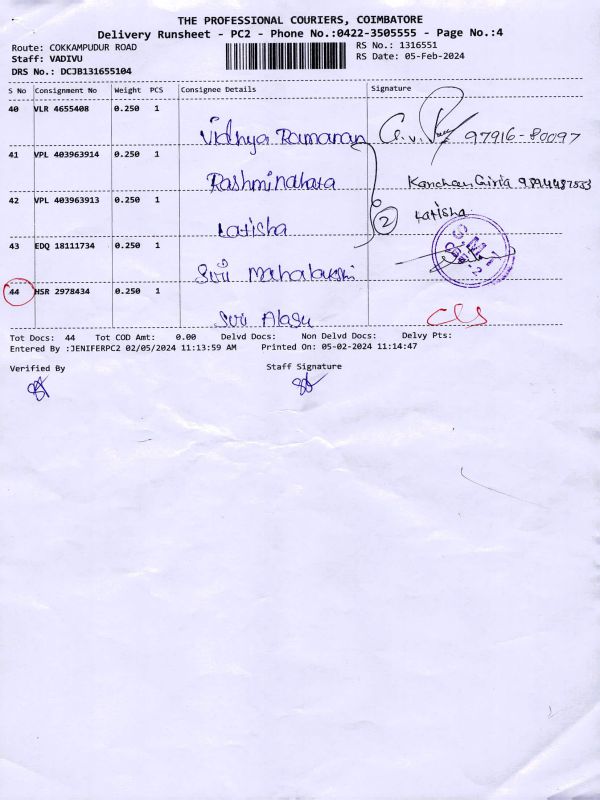 THE PROFESSIONAL COURIERS, COIMBATORE
Delivery Runsheet - PC2 - Phone No.:0422-3505555 - Page No.:4
Route: COKKAMPUDUR ROAD
RS No.: 1316551
Staff: VADIVU
RS Date: 05-Feb-2024
DRS No.: DCJB131655104
S No Consignment No Weight PCS Consignee Details Signature
40 VLR 4655408 0.250 1
Vidhya Ramanan 97916-80097
41 VPL 403963914 0.250 1
Kanchan
42 VPL 403963913 0.250 1
Latisha 2 Latisha
43 EDQ 18111734 0.250 1
Sri Mahalakshmi
44 HSR 2978434 0.250 1
Tot Docs: 44 Tot COD Amt: 0.00 Delvd Docs: Non Delvd Docs: Delvy Pts:
Entered By :JENIFERPC2 02/05/2024 11:13:59 AM Printed On: 05-02-2024 11:14:47
Verified By Staff Signature